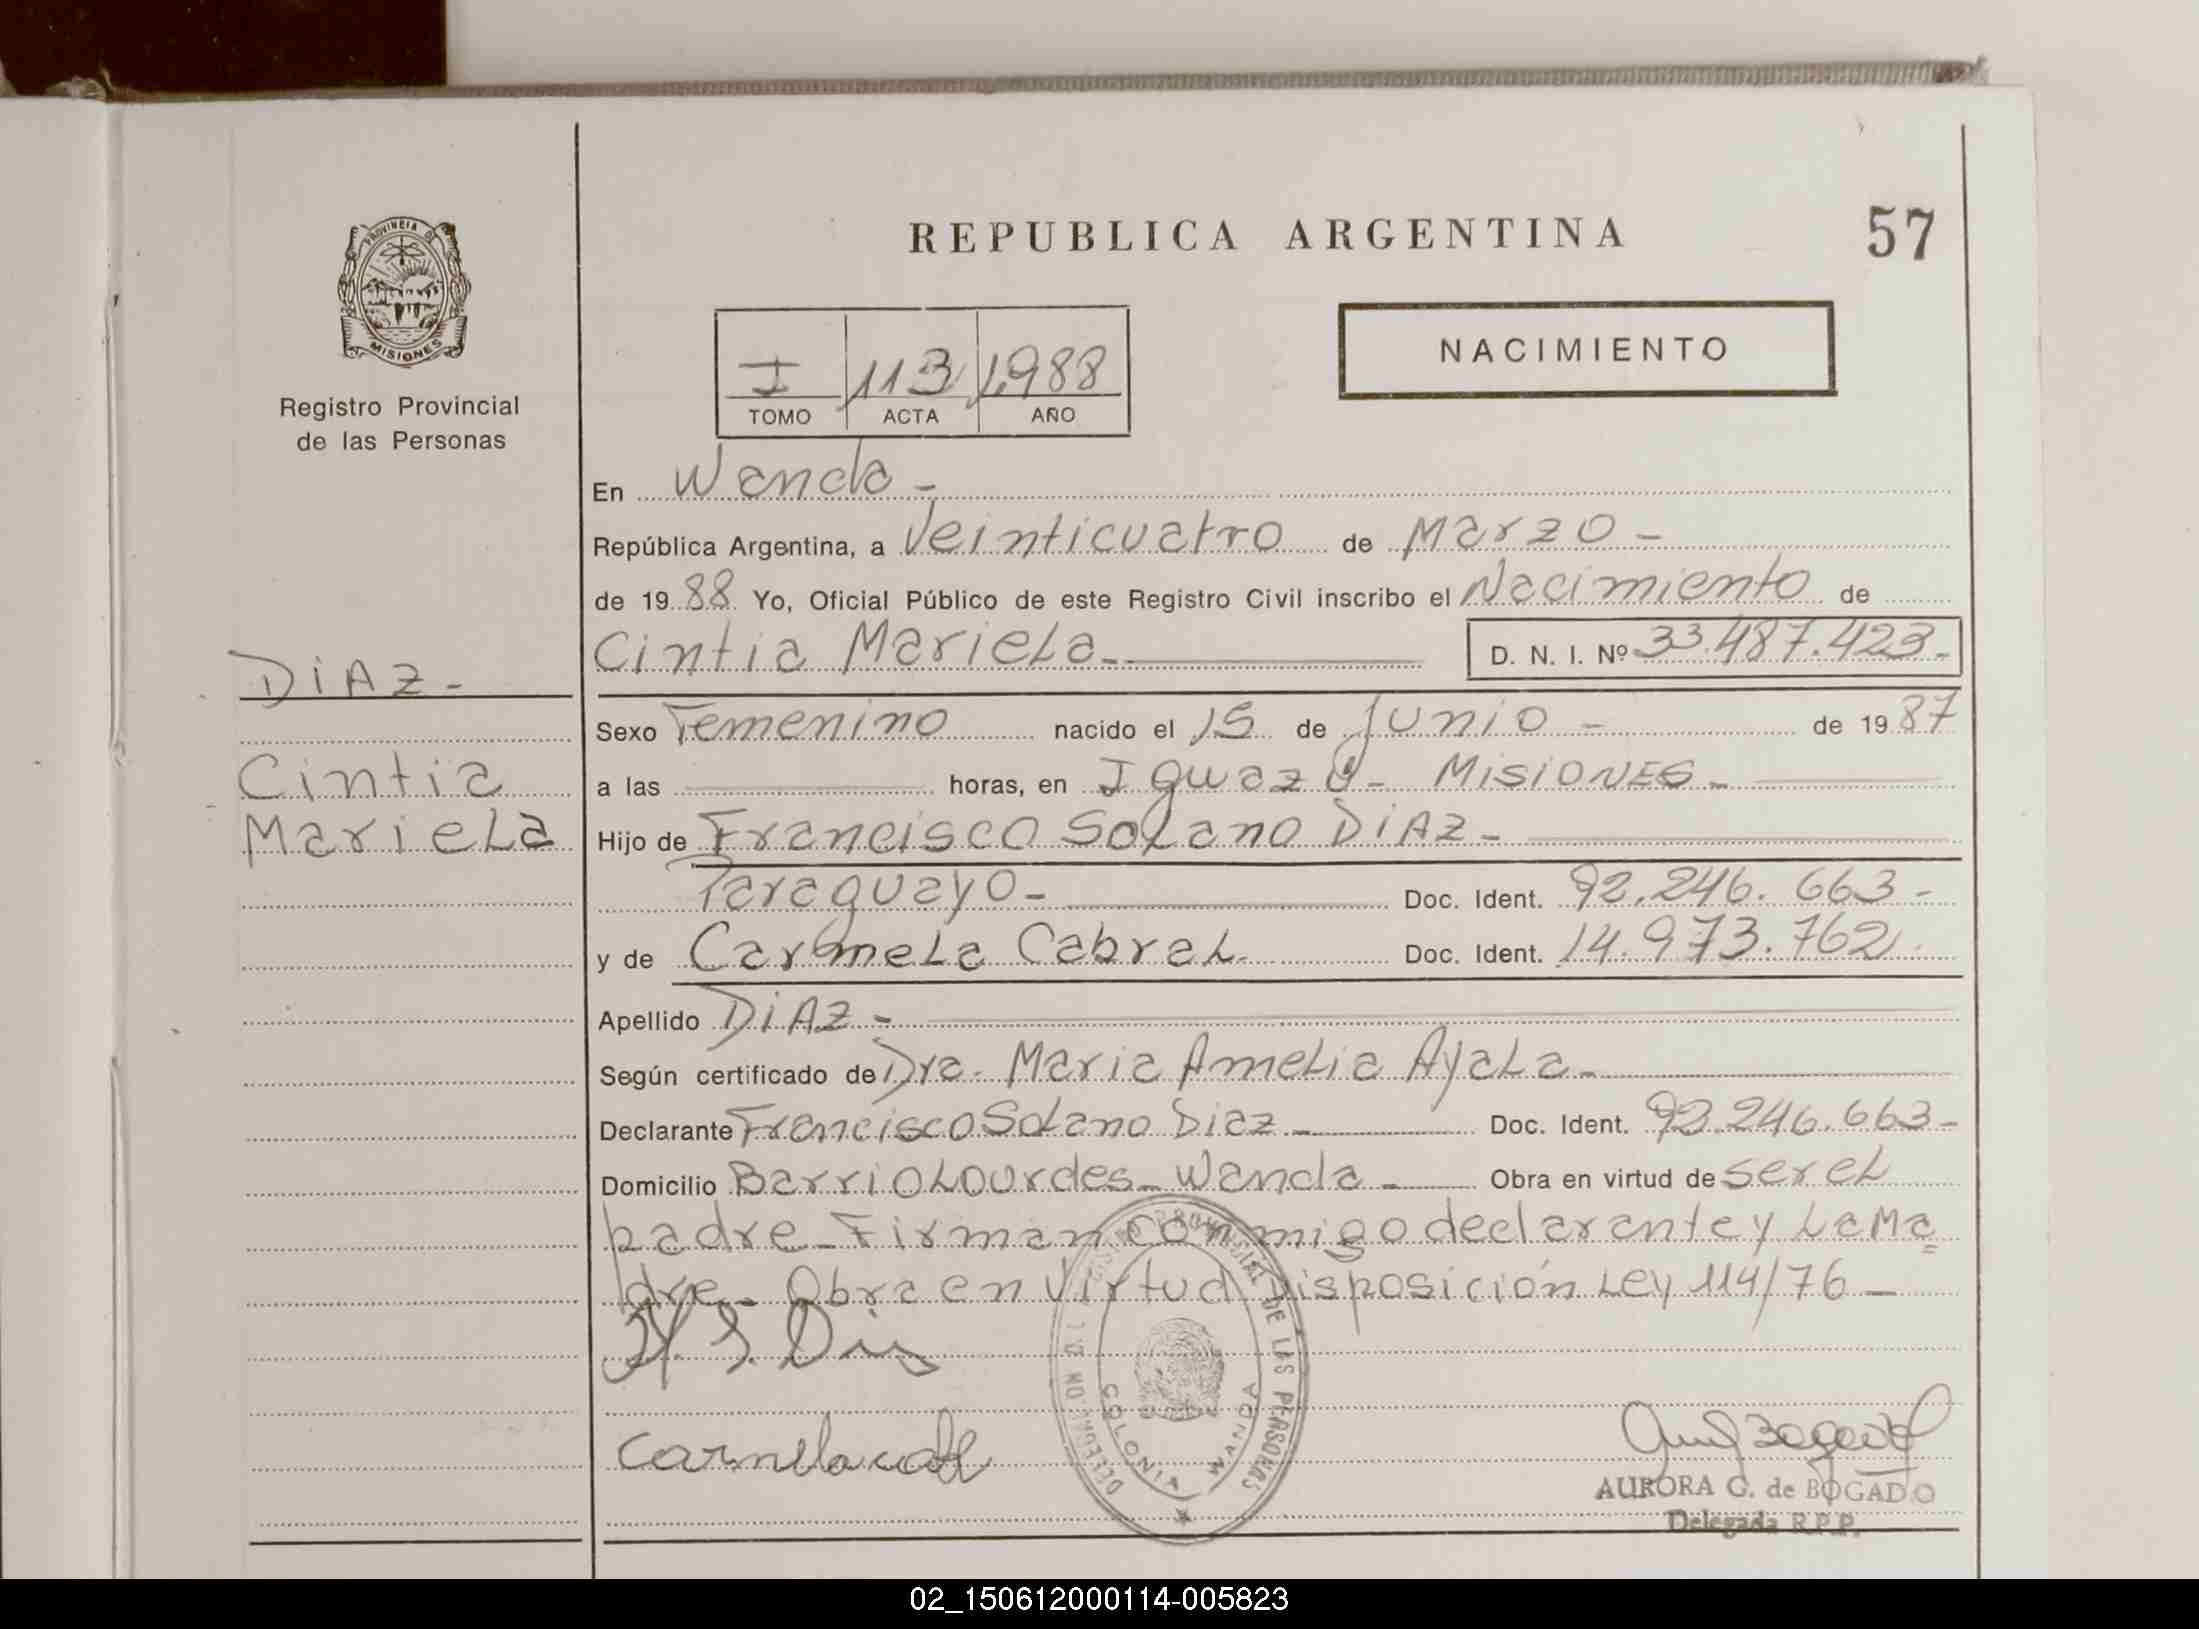 REPUBLICA ARGENTINA
57
PROVINCIA DE
MISIONES
Registro Provincial
de las Personas
I 113 1988
TOMO ACTA AÑO
NACIMIENTO
En Wanda -
República Argentina, a Veinticuatro de Marzo -
de 1988 Yo, Oficial Público de este Registro Civil inscribo el Nacimiento de
Cintia Mariela - D. N. I. Nº 33.487.423 -
DIAZ -
Cintia
Mariela
Sexo Femenino nacido el 15 de Junio - de 1987
a las horas, en Iguazú - MISIONES -
Hijo de Francisco Solano DIAZ -
Paraguayo - Doc. Ident. 92.246.663 -
y de Carmela Cabral - Doc. Ident. 14.973.762
Apellido DIAZ -
Según certificado de Dra. Maria Amelia Ayala -
Declarante Francisco Solano Diaz - Doc. Ident. 92.246.663 -
Domicilio Barrio Lourdes - Wanda - Obra en virtud de ser el
padre - Firman conmigo declarante y la Ma
dre - Obra en Virtud Disposición Ley 114/76 -
COLONIA WANDA
DE LAS PERSONAS
AURORA G. de BOGADO
Delegada R.P.P.
02_150612000114-005823